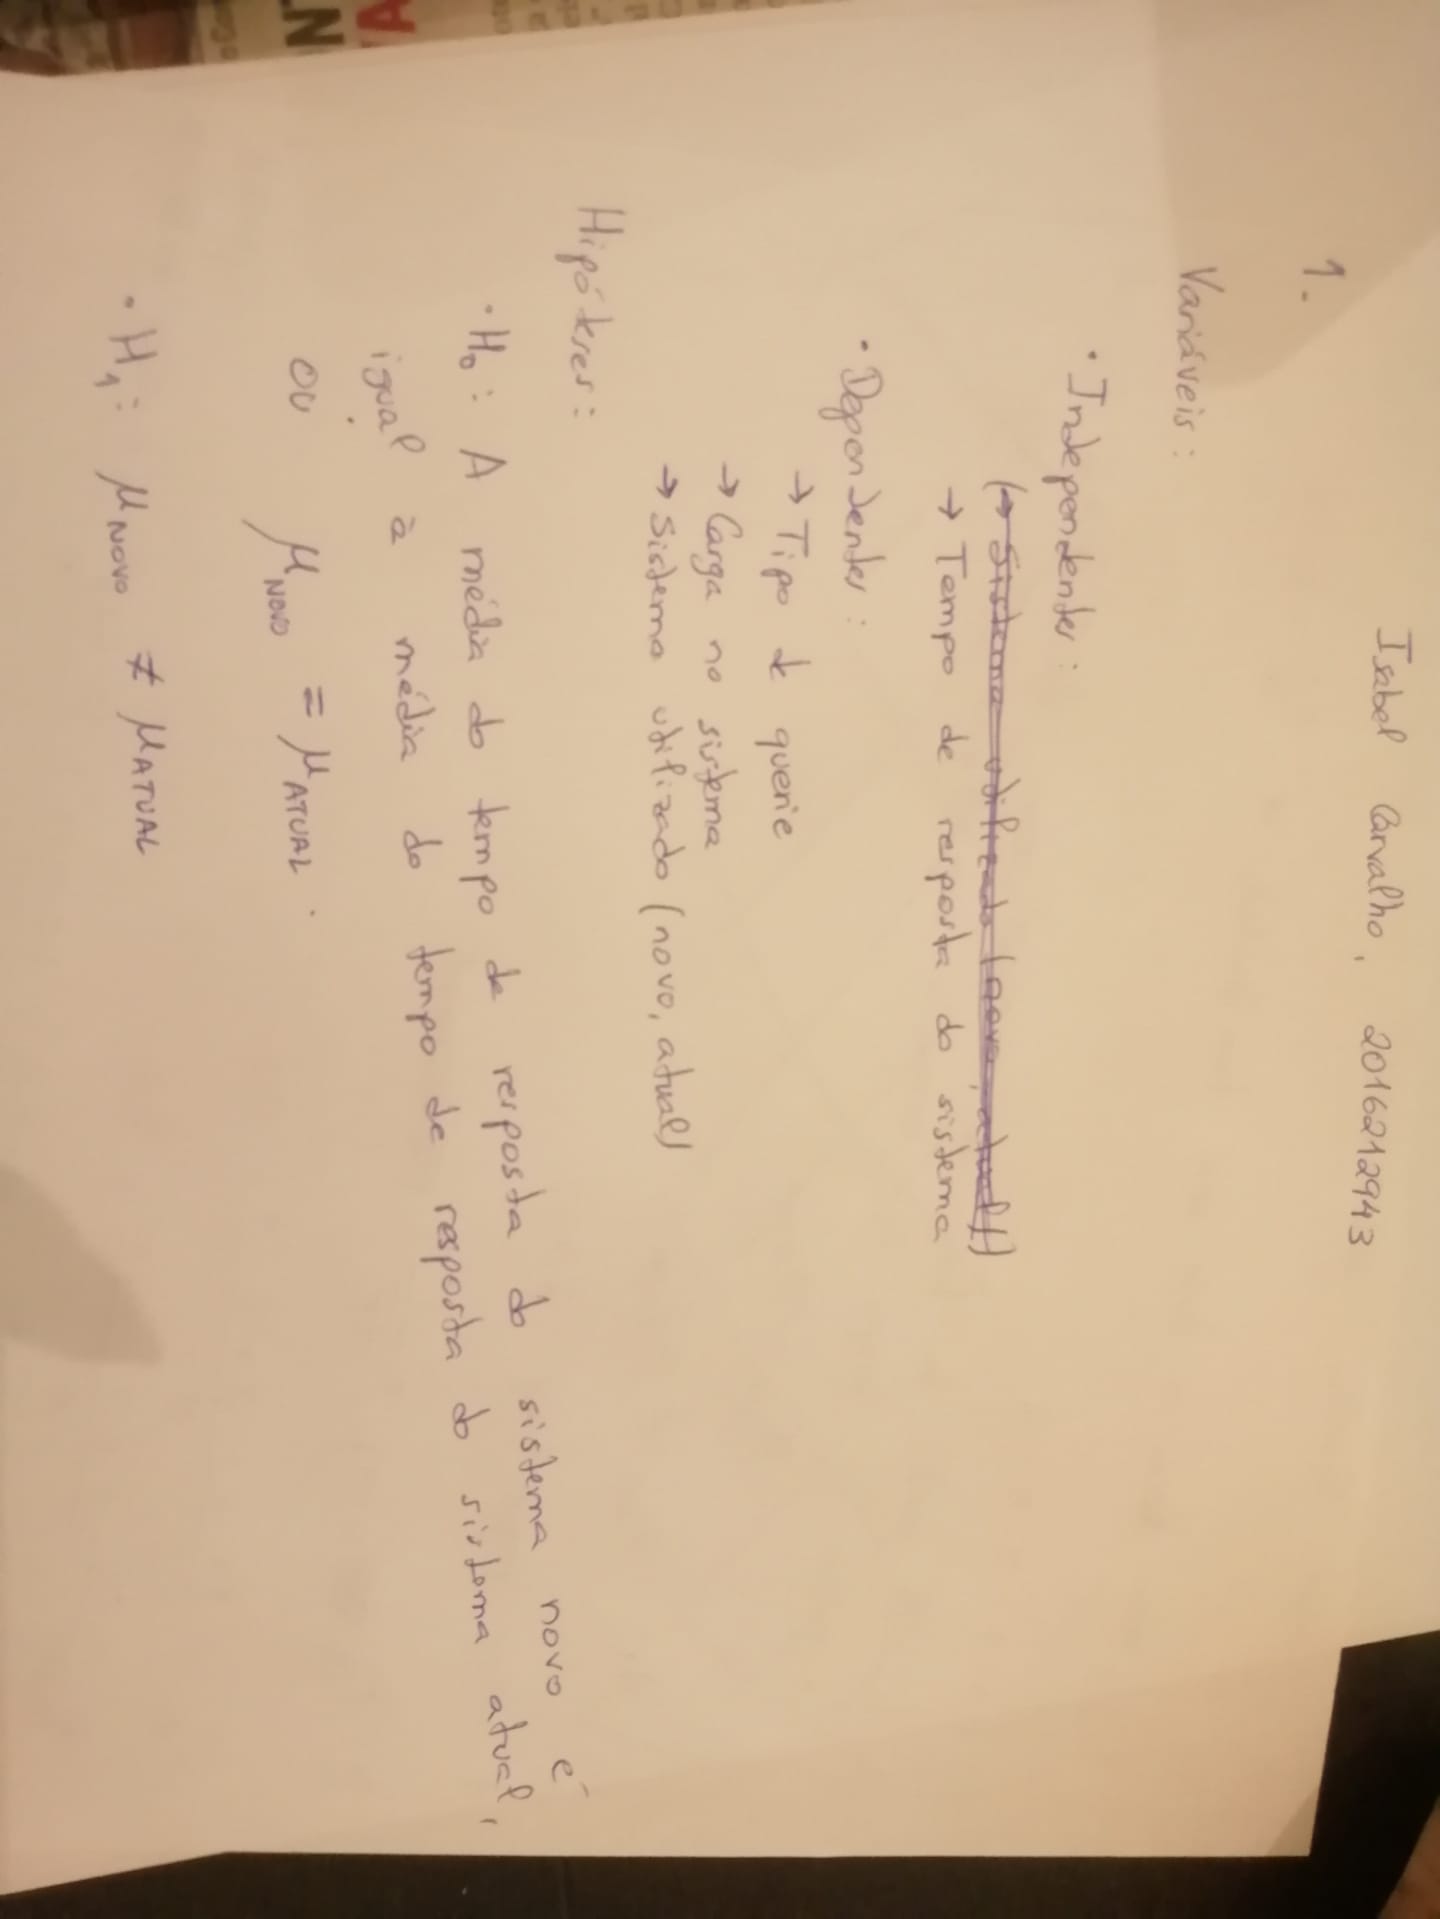 Isabel Carvalho, 2016212943
1.
Variáveis:
• Independentes:
(→ Sistema utilizado (novo, atual))
→ Tempo de resposta do sistema
• Dependentes:
→ Tipo de querie
→ Carga no sistema
→ Sistema utilizado (novo, atual)
Hipóteses:
• H₀: A média do tempo de resposta do sistema novo é
igual à média do tempo de resposta do sistema atual,
ou μ NOVO = μ ATUAL.
• H₁: μ NOVO ≠ μ ATUAL